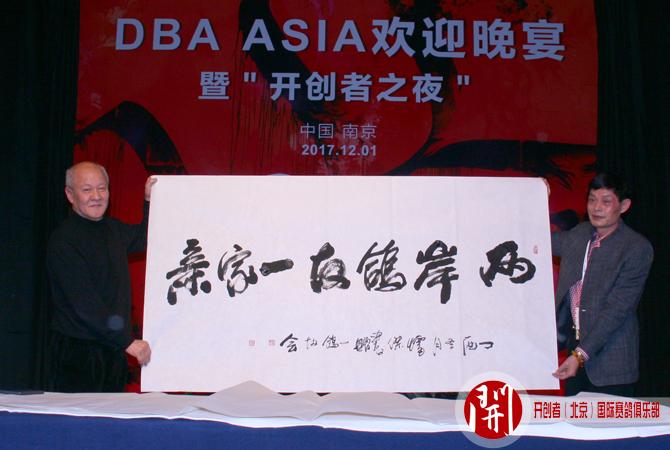 DBA ASIA欢迎晚宴
暨"开创者之夜"
中国 南京
2017.12.01
两岸鸽友一家亲
丁酉冬月
開
开创者（北京）国际赛鸽俱乐部